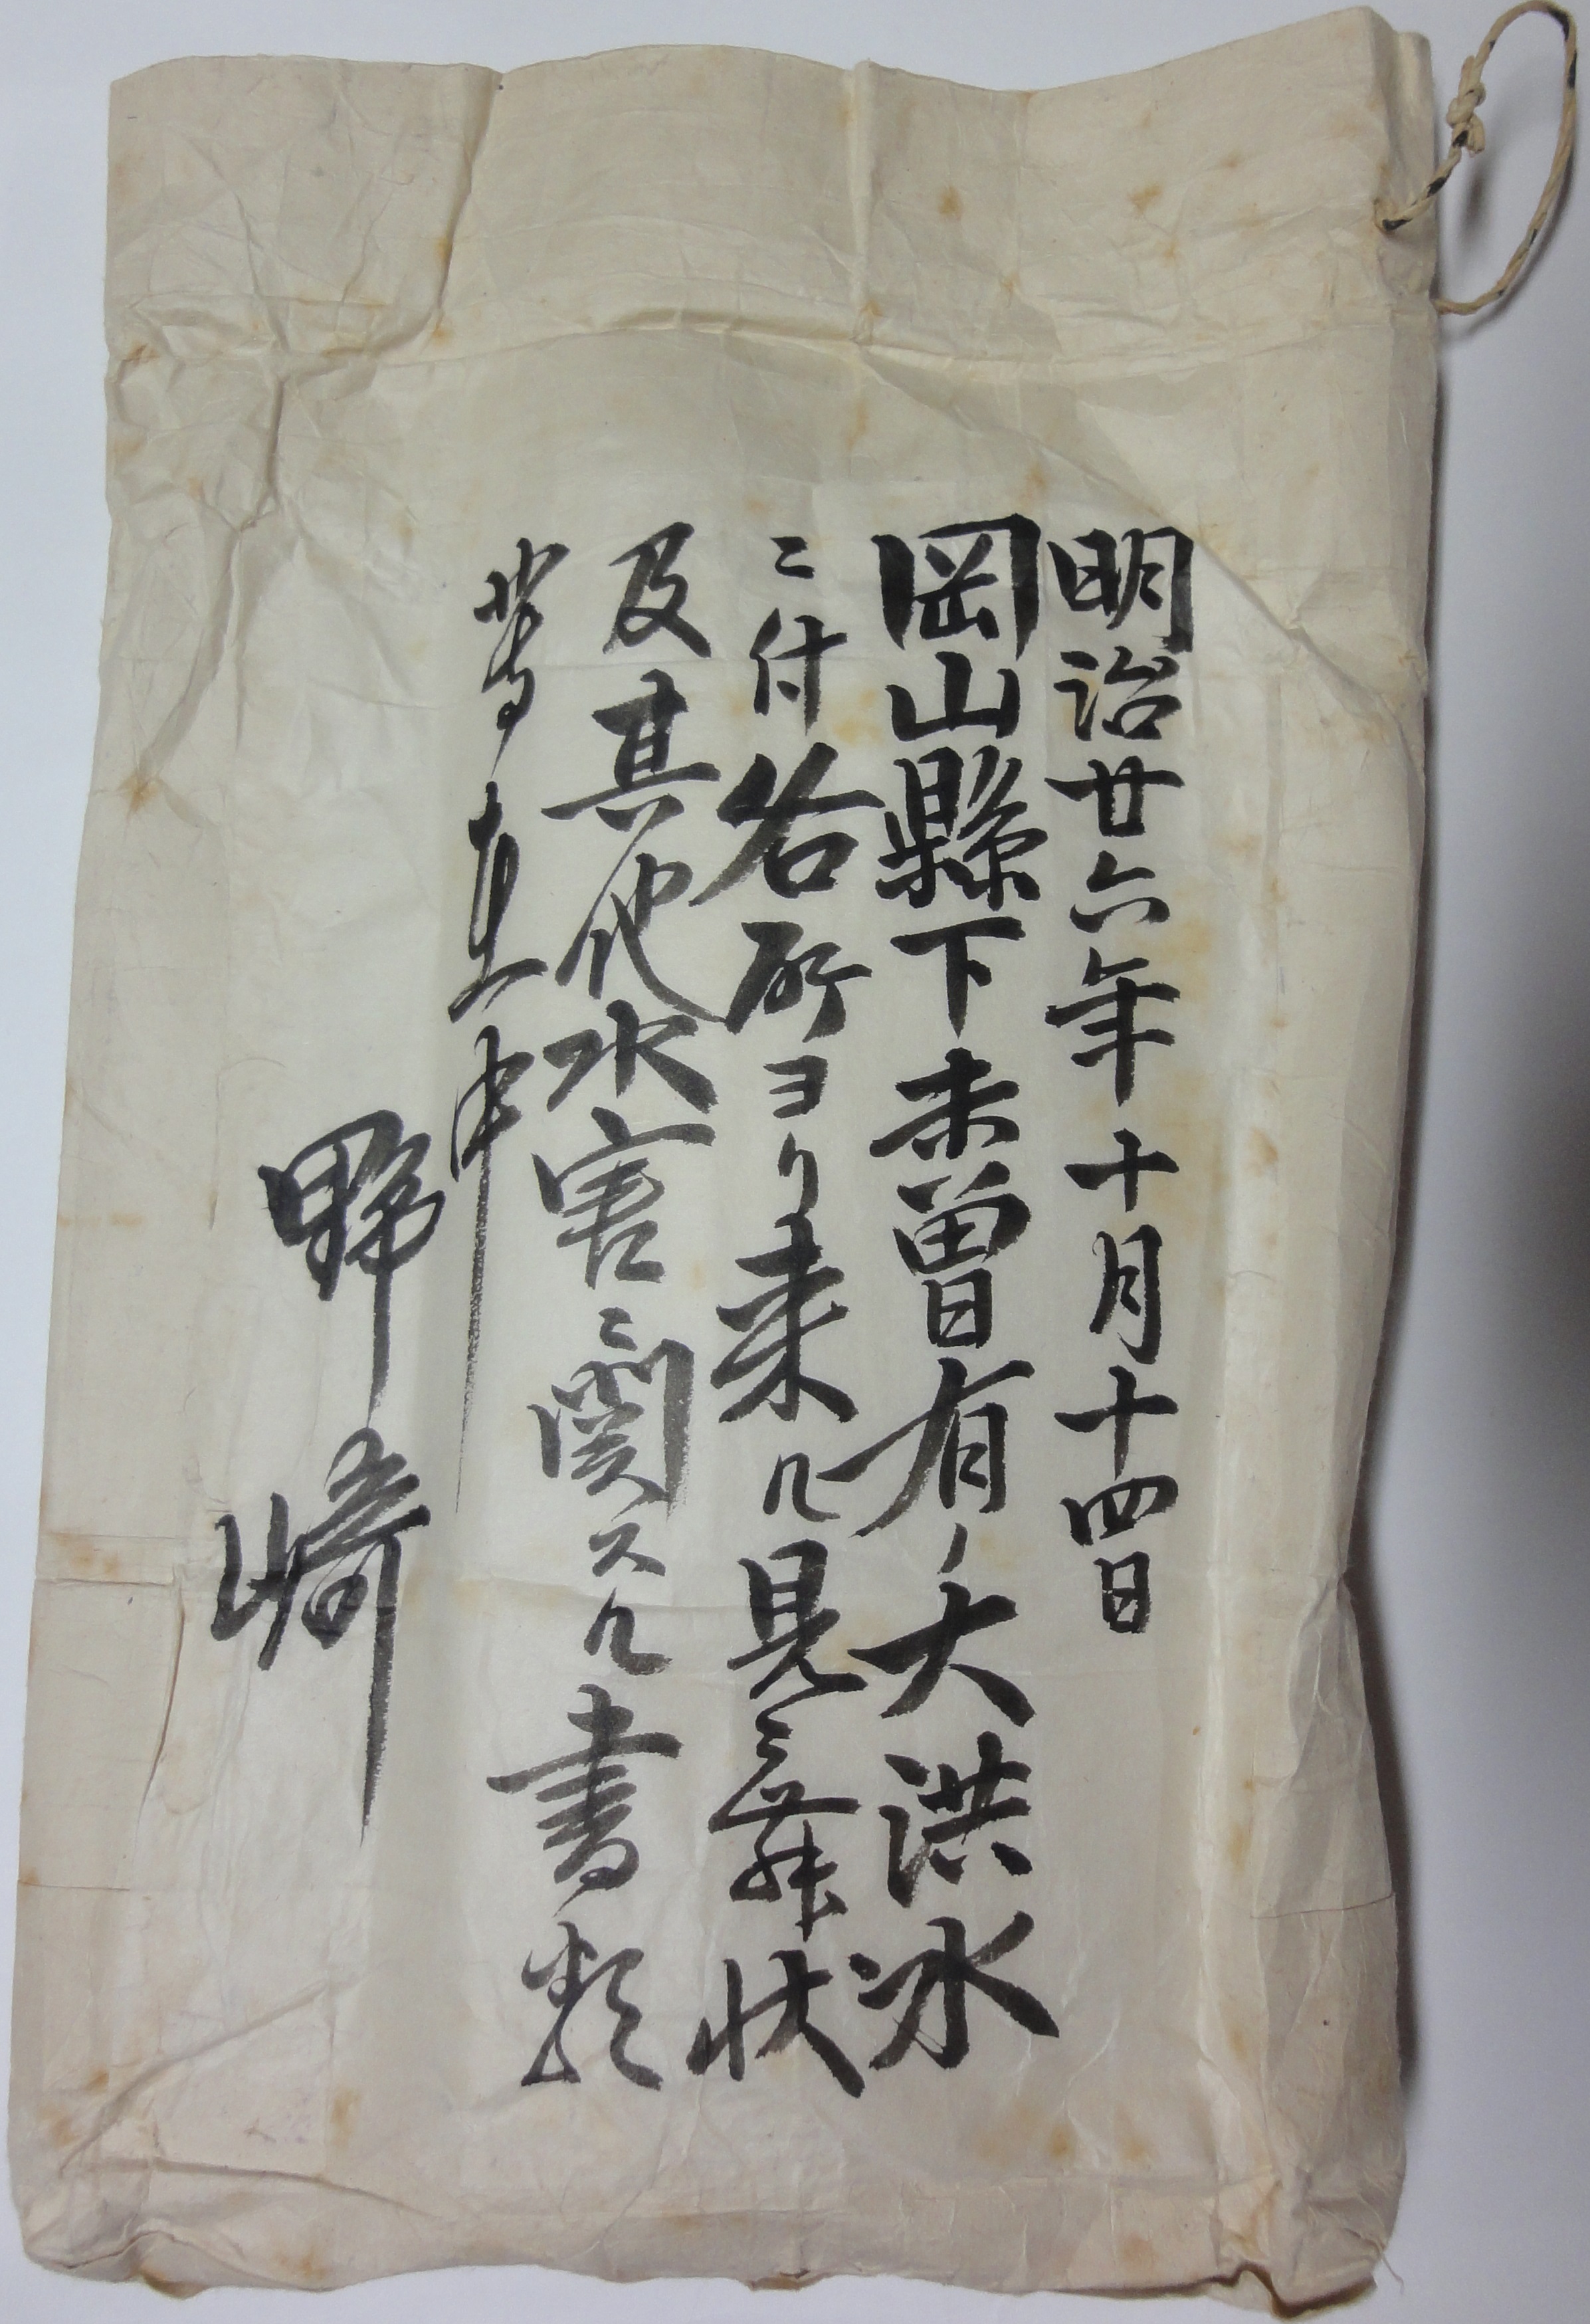 明治廿六年十月十四日
岡山縣下未曽有ノ大洪水
ニ付各所ヨリ来ル見舞状
及其他水害ニ関スル書類
等在中
野﨑